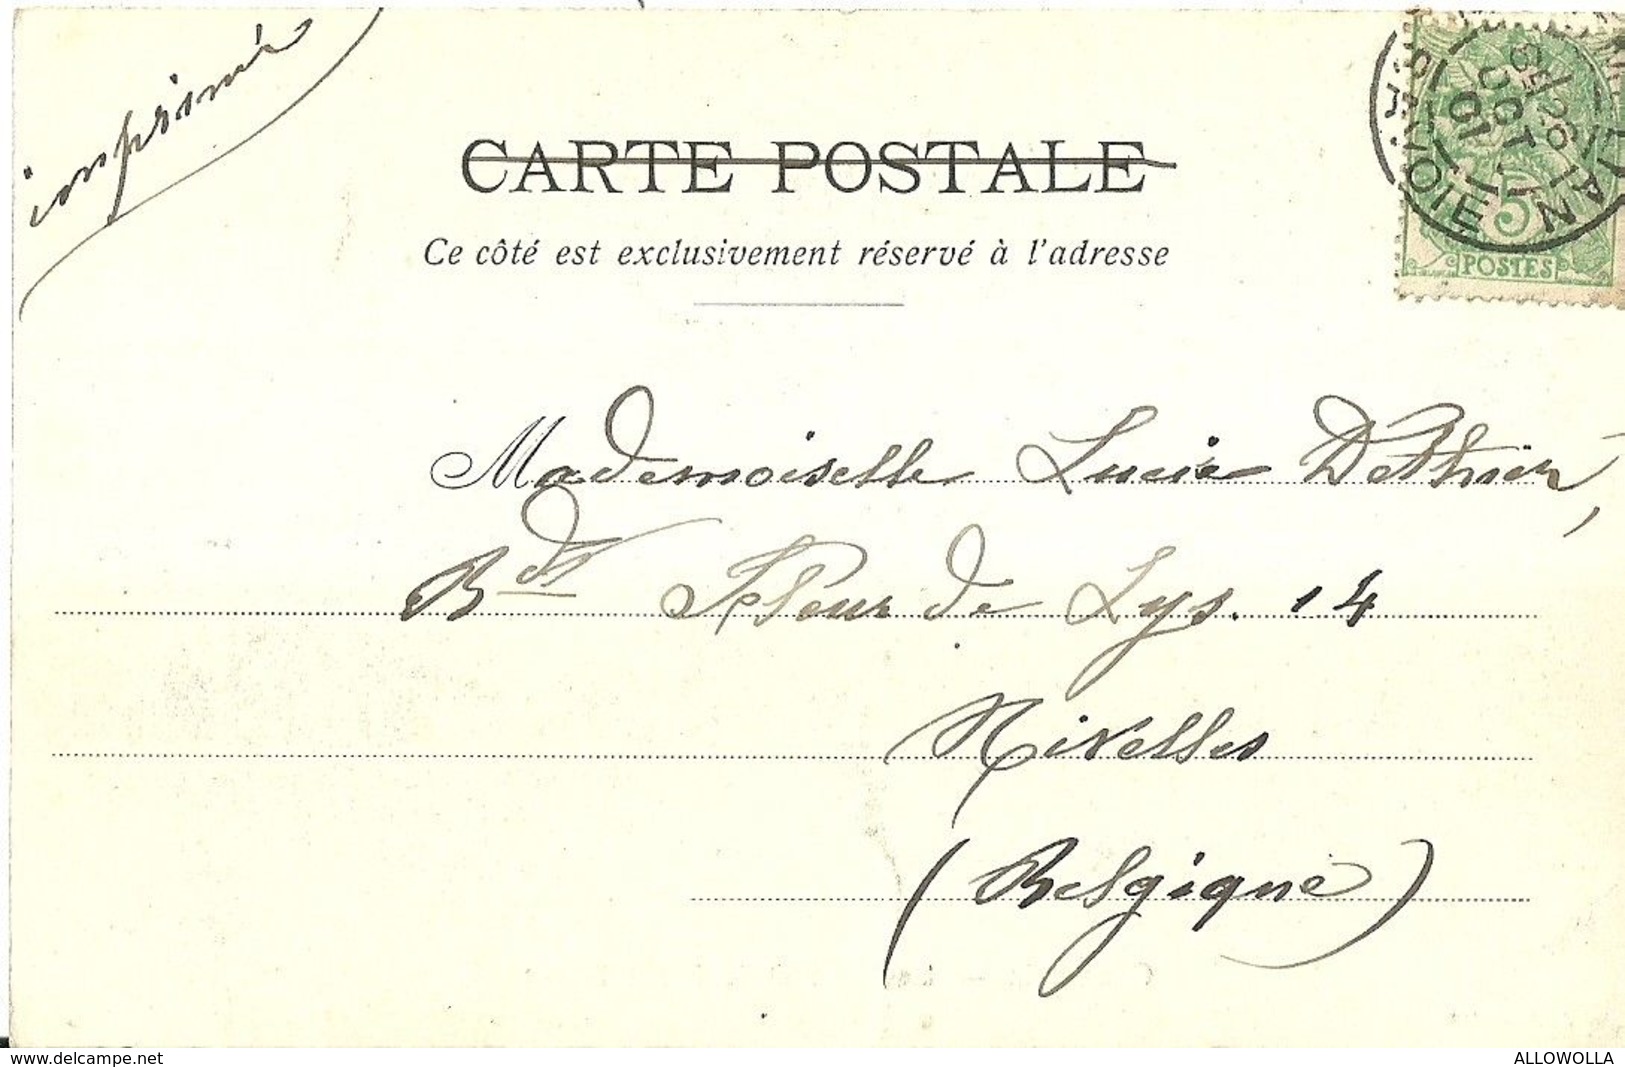 imprimé
CARTE POSTALE
Ce côté est exclusivement réservé à l'adresse
5
POSTES
Mademoiselle Lucie Dethier,
Bd Fleur de Lys. 14
Nivelles
(Belgique)
www.delcampe.net
ALLOWOLLA